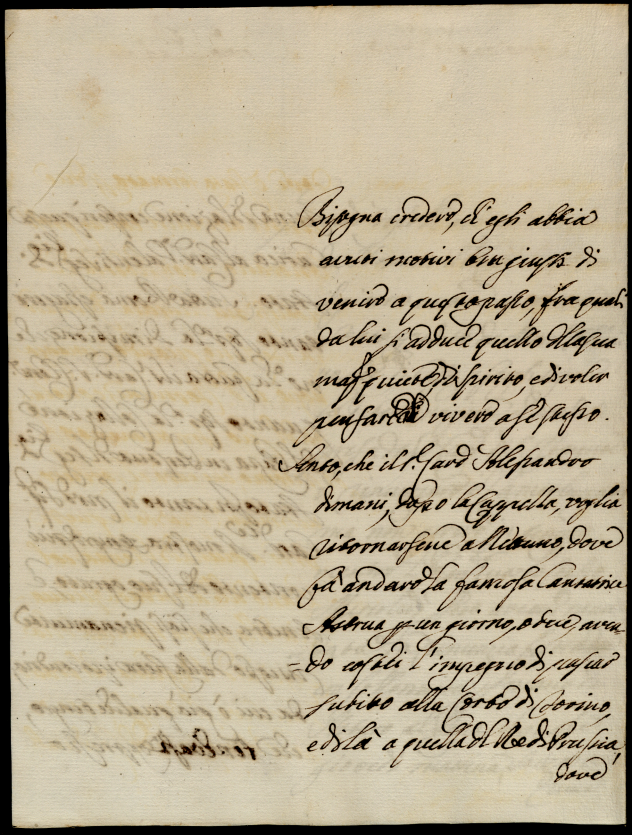 Bisogna credere, ch'egli abbia
avuti motivi ben giusti di
venire a questo passo, fra quali
da lui si adduce quello della sua
magg.r quiete di spirito, e di voler
pensare di vivere a se stesso.
Sento, che il S.r Card. Alessandro
dimani, dopo la Cappella, voglia
ritornarsene a Nettuno, dove
fà andare la famosa Cantatrice
Astrua p un giorno, o due, aven=
=do costei l'impegno di passar
subito alla Corte di Torino,
e di là a quella del Re di Prussia,
dove